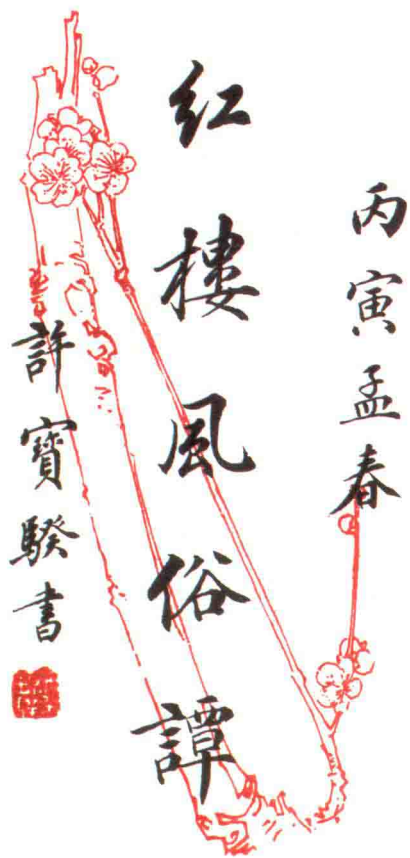 丙寅孟春
紅樓風俗譚
許寶騤書